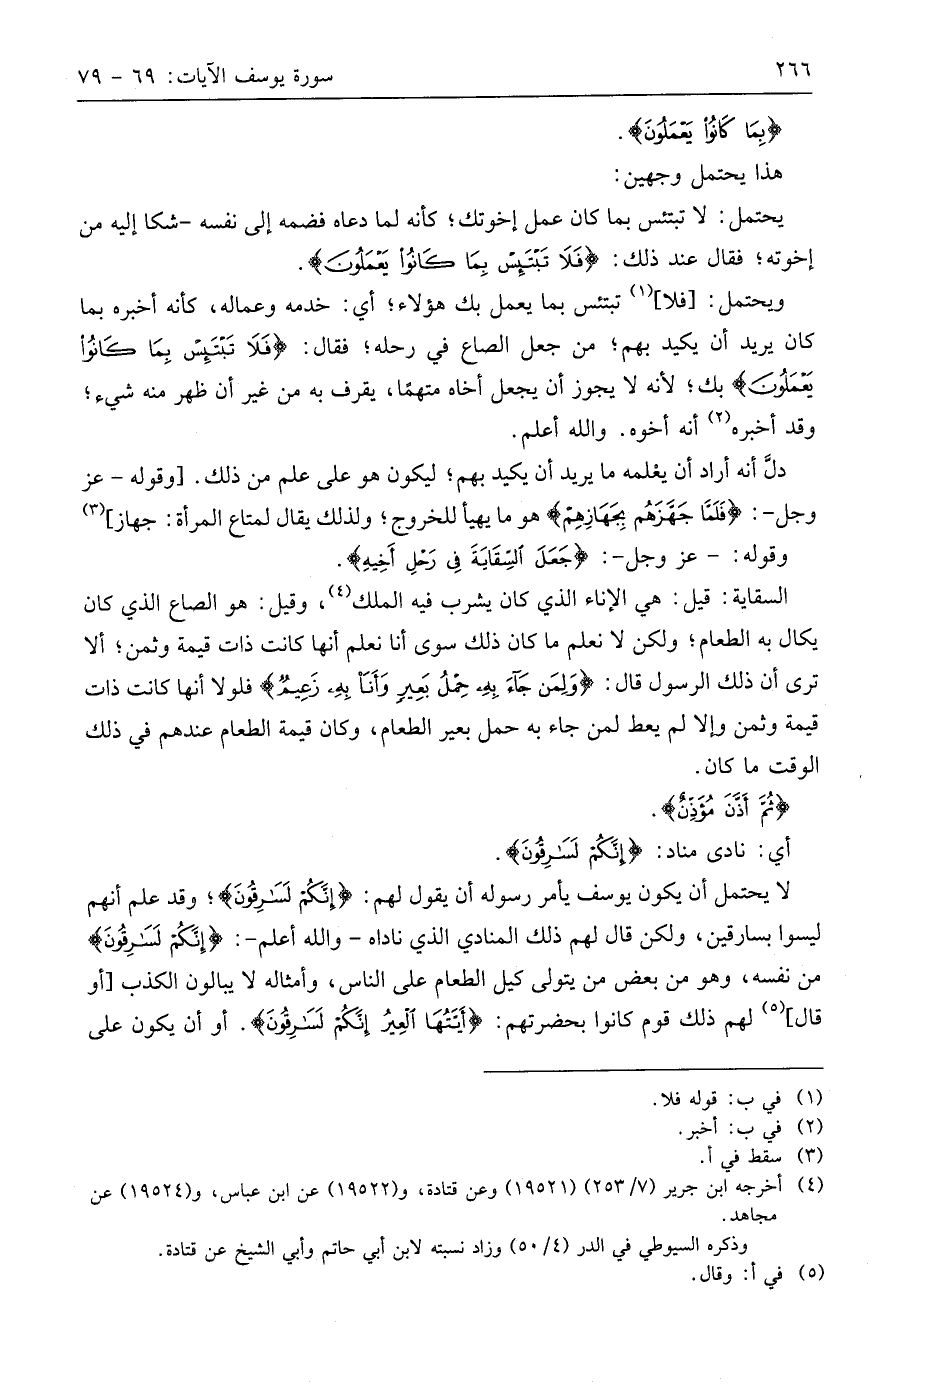 ٢٦٦
سورة يوسف الآيات: ٦٩ - ٧٩
﴿بِمَا كَانُوا۟ يَعْمَلُونَ﴾.
هذا يحتمل وجهين:
يحتمل: لا تبتئس بما كان عمل إخوتك؛ كأنه لما دعاه فضمه إلى نفسه -شكا إليه من
إخوته؛ فقال عند ذلك: ﴿فَلَا تَبْتَئِسْ بِمَا كَانُوا۟ يَعْمَلُونَ﴾.
ويحتمل: [فلا](١) تبتئس بما يعمل بك هؤلاء؛ أي: خدمه وعماله، كأنه أخبره بما
كان يريد أن يكيد بهم؛ من جعل الصاع في رحله؛ فقال: ﴿فَلَا تَبْتَئِسْ بِمَا كَانُوا۟
يَعْمَلُونَ﴾ بك؛ لأنه لا يجوز أن يجعل أخاه متهمًا، يقرف به من غير أن ظهر منه شيء؛
وقد أخبره(٢) أنه أخوه. والله أعلم.
دلَّ أنه أراد أن يعْلمه ما يريد أن يكيد بهم؛ ليكون هو على علم من ذلك. [وقوله - عز
وجل-: ﴿فَلَمَّا جَهَّزَهُم بِجَهَازِهِمْ﴾ هو ما يهيأ للخروج؛ ولذلك يقال لمتاع المرأة: جهاز](٣)
وقوله: - عز وجل-: ﴿جَعَلَ ٱلسِّقَايَةَ فِى رَحْلِ أَخِيهِ﴾.
السقاية: قيل: هي الإناء الذي كان يشرب فيه الملك(٤)، وقيل: هو الصاع الذي كان
يكال به الطعام؛ ولكن لا نعلم ما كان ذلك سوى أنا نعلم أنها كانت ذات قيمة وثمن؛ ألا
ترى أن ذلك الرسول قال: ﴿وَلِمَن جَآءَ بِهِۦ حِمْلُ بَعِيرٍ وَأَنَا۠ بِهِۦ زَعِيمٌ﴾ فلولا أنها كانت ذات
قيمة وثمن وإلا لم يعط لمن جاء به حمل بعير الطعام، وكان قيمة الطعام عندهم في ذلك
الوقت ما كان.
﴿ثُمَّ أَذَّنَ مُؤَذِّنٌ﴾.
أي: نادى مناد: ﴿إِنَّكُمْ لَسَـٰرِقُونَ﴾.
لا يحتمل أن يكون يوسف يأمر رسوله أن يقول لهم: ﴿إِنَّكُمْ لَسَـٰرِقُونَ﴾؛ وقد علم أنهم
ليسوا بسارقين، ولكن قال لهم ذلك المنادي الذي ناداه - والله أعلم-: ﴿إِنَّكُمْ لَسَـٰرِقُونَ﴾
من نفسه، وهو من بعض من يتولى كيل الطعام على الناس، وأمثاله لا يبالون الكذب [أو
قال](٥) لهم ذلك قوم كانوا بحضرتهم: ﴿أَيَّتُهَا ٱلْعِيرُ إِنَّكُمْ لَسَـٰرِقُونَ﴾. أو أن يكون على
(١) في ب: قوله فلا.
(٢) في ب: أخبر.
(٣) سقط في أ.
(٤) أخرجه ابن جرير (٧/ ٢٥٣) (١٩٥٢١) وعن قتادة، و(١٩٥٢٢) عن ابن عباس، و(١٩٥٢٤) عن
مجاهد.
وذكره السيوطي في الدر (٤/ ٥٠) وزاد نسبته لابن أبي حاتم وأبي الشيخ عن قتادة.
(٥) في أ: وقال.